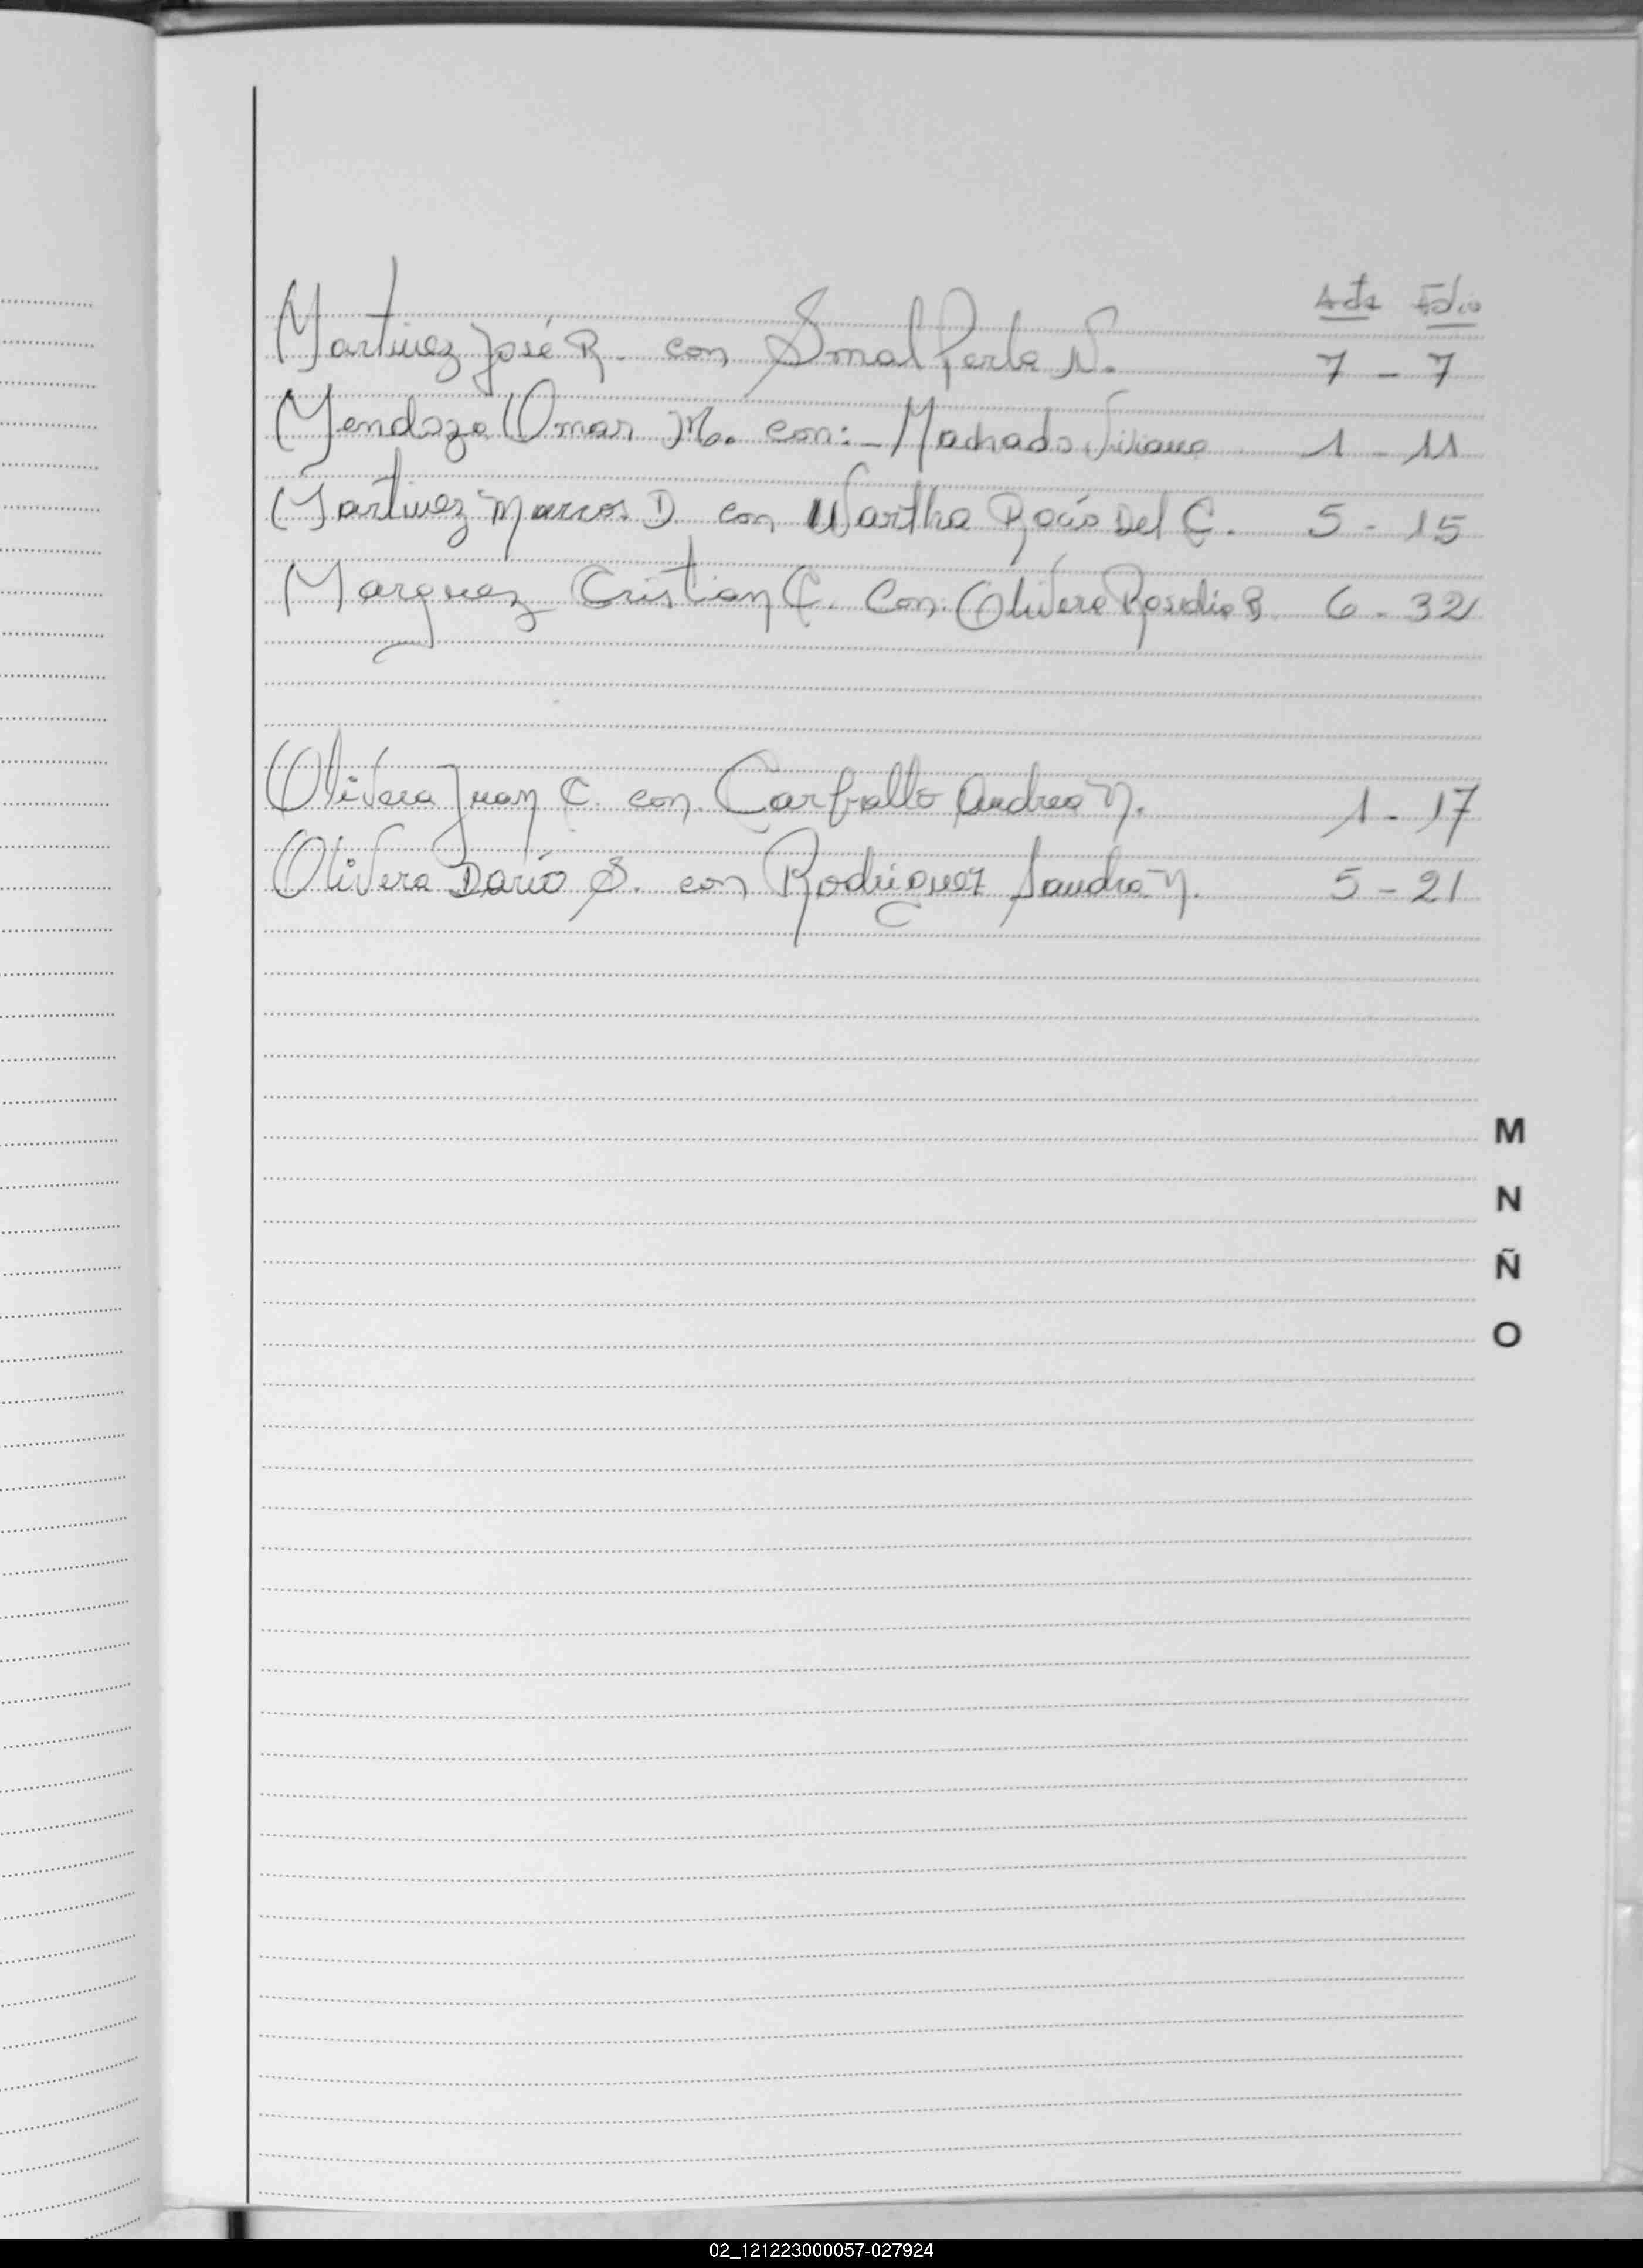 Acta Folio
Martinez José R. con Smal Perla N. 7 - 7
Mendoza Omar M. con:- Machado Viviana 1 - 11
Martinez Marcos D. con Wartha Rocío Del C. 5 - 15
Marquez Cristian C. Con. Olivera Rosalia B. 6 - 32
Olivera Juan C. con. Carballo Andrea N. 1 - 17
Olivera Darío S. con Rodriguez Sandra N. 5 - 21
M
N
Ñ
O
02_121223000057-027924